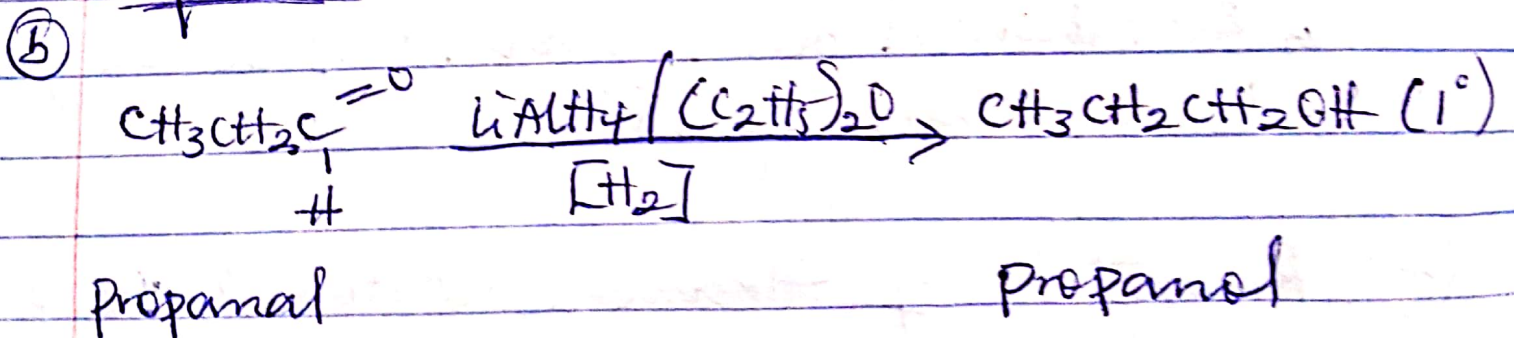 (b)
CH3CH2C=O LiAlH4/(C2H5)2O CH3CH2CH2OH (1°)
H [H2]
propanal propanol